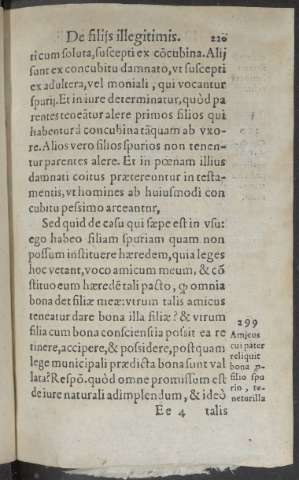 De filijs illegitimis. 220
ticum soluta, suscepti ex cōcubina. Alij
sunt ex concubitu damnato, vt suscepti
ex adultera, vel moniali, qui vocantur
spurij. Et in iure determinatur, quòd pa
rentes teneātur alere primos filios qui
habentur à concubina tāquam ab vxo-
re. Alios vero filios spurios non tenen-
tur parentes alere. Et in pœnam illius
damnati coitus prætereuntur in testa-
mentis, vt homines ab huiusmodi con
cubitu pessimo arceantur,
Sed quid de casu qui sæpe est in vsu:
ego habeo filiam spuriam quam non
possum instituere hæredem, quia leges
hoc vetant, voco amicum meum, & cō
stituo eum hæredē tali pacto, ꝙ omnia
bona det filiæ meæ: vtrum talis amicus
teneatur dare bona illa filiæ? & vtrum
filia cum bona consciensiia possit ea re
tinere, accipere, & possidere, postquam
lege municipali prædicta bona sunt val
lata? Respō. quòd omne promissum est
de iure naturali adimplendum, & ideò
Ee 4 talis
299
Amicus
cui pater
reliquit
bona p-
filio spu
rio, te-
neturilla